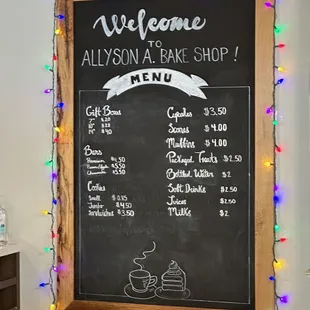 Welcome
TO
ALLYSON A. BAKE SHOP!
MENU
Gift Boxes
7" $20
10" $28
14" $40
Bars
Premium $5.50
$5.50
$5.50
Cookies
Small $0.75
Jumbo $4.50
Sandwiches $3.50
Cupcakes $3.50
Scones $4.00
Muffins $4.00
Packaged Treats $2.50
Bottled Water $2
Soft Drinks $2.50
Juices $2.50
Milks $2